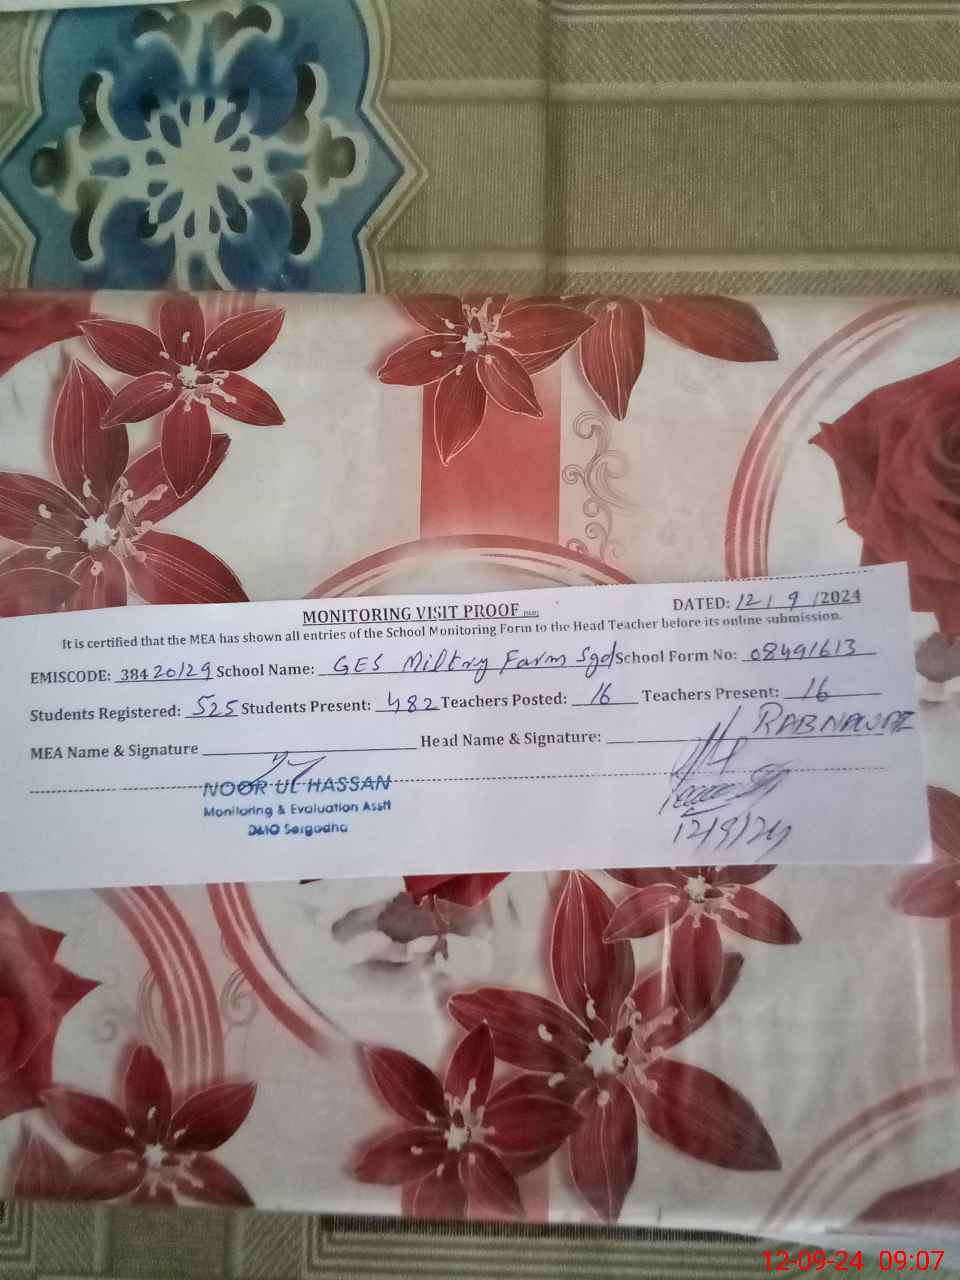 MONITORING VISIT PROOF
DATED: 12/9/2024
It is certified that the MEA has shown all entries of the School Monitoring Form to the Head Teacher before its online submission.
EMISCODE: 38420129 School Name: GES Miltry Farm Sgd School Form No: 08491613
Students Registered: 525 Students Present: 482 Teachers Posted: 16 Teachers Present: 16
MEA Name & Signature Head Name & Signature: RABNAWAZ
NOOR UL HASSAN
Monitoring & Evaluation Asstt
DMO Sargodha
12/9/24
12-09-24 09:07